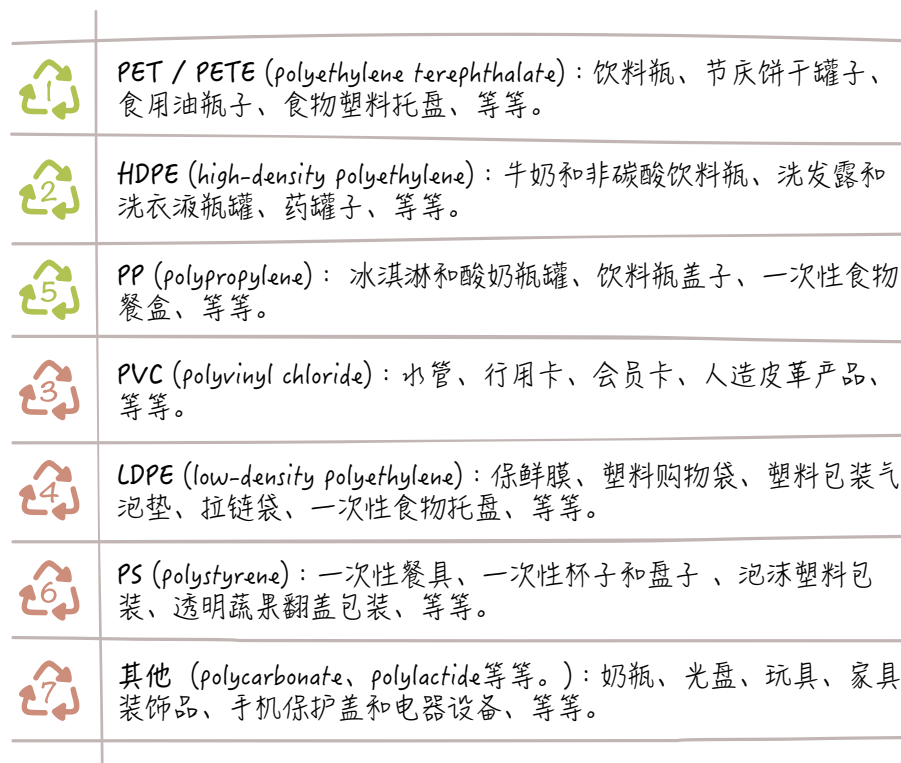 1
PET / PETE (polyethylene terephthalate)：饮料瓶、节庆饼干罐子、
食用油瓶子、食物塑料托盘、等等。
2
HDPE (high-density polyethylene)：牛奶和非碳酸饮料瓶、洗发露和
洗衣液瓶罐、药罐子、等等。
5
PP (polypropylene)： 冰淇淋和酸奶瓶罐、饮料瓶盖子、一次性食物
餐盒、等等。
3
PVC (polyvinyl chloride)：水管、行用卡、会员卡、人造皮革产品、
等等。
4
LDPE (low-density polyethylene)：保鲜膜、塑料购物袋、塑料包装气
泡垫、拉链袋、一次性食物托盘、等等。
6
PS (polystyrene)：一次性餐具、一次性杯子和盘子 、泡沫塑料包
装、透明蔬果翻盖包装、等等。
7
其他 (polycarbonate、polylactide等等。)：奶瓶、光盘、玩具、家具
装饰品、手机保护盖和电器设备、等等。